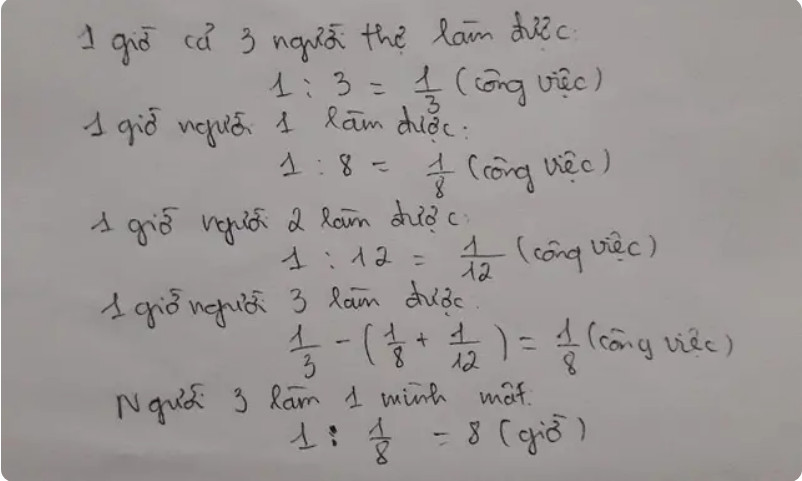 1 giờ cả 3 người thợ làm được:
1 : 3 = 1/3 (công việc)
1 giờ người 1 làm được:
1 : 8 = 1/8 (công việc)
1 giờ người 2 làm được:
1 : 12 = 1/12 (công việc)
1 giờ người 3 làm được.
1/3 - (1/8 + 1/12) = 1/8 (công việc)
Người 3 làm 1 mình mất.
1 : 1/8 = 8 (giờ)